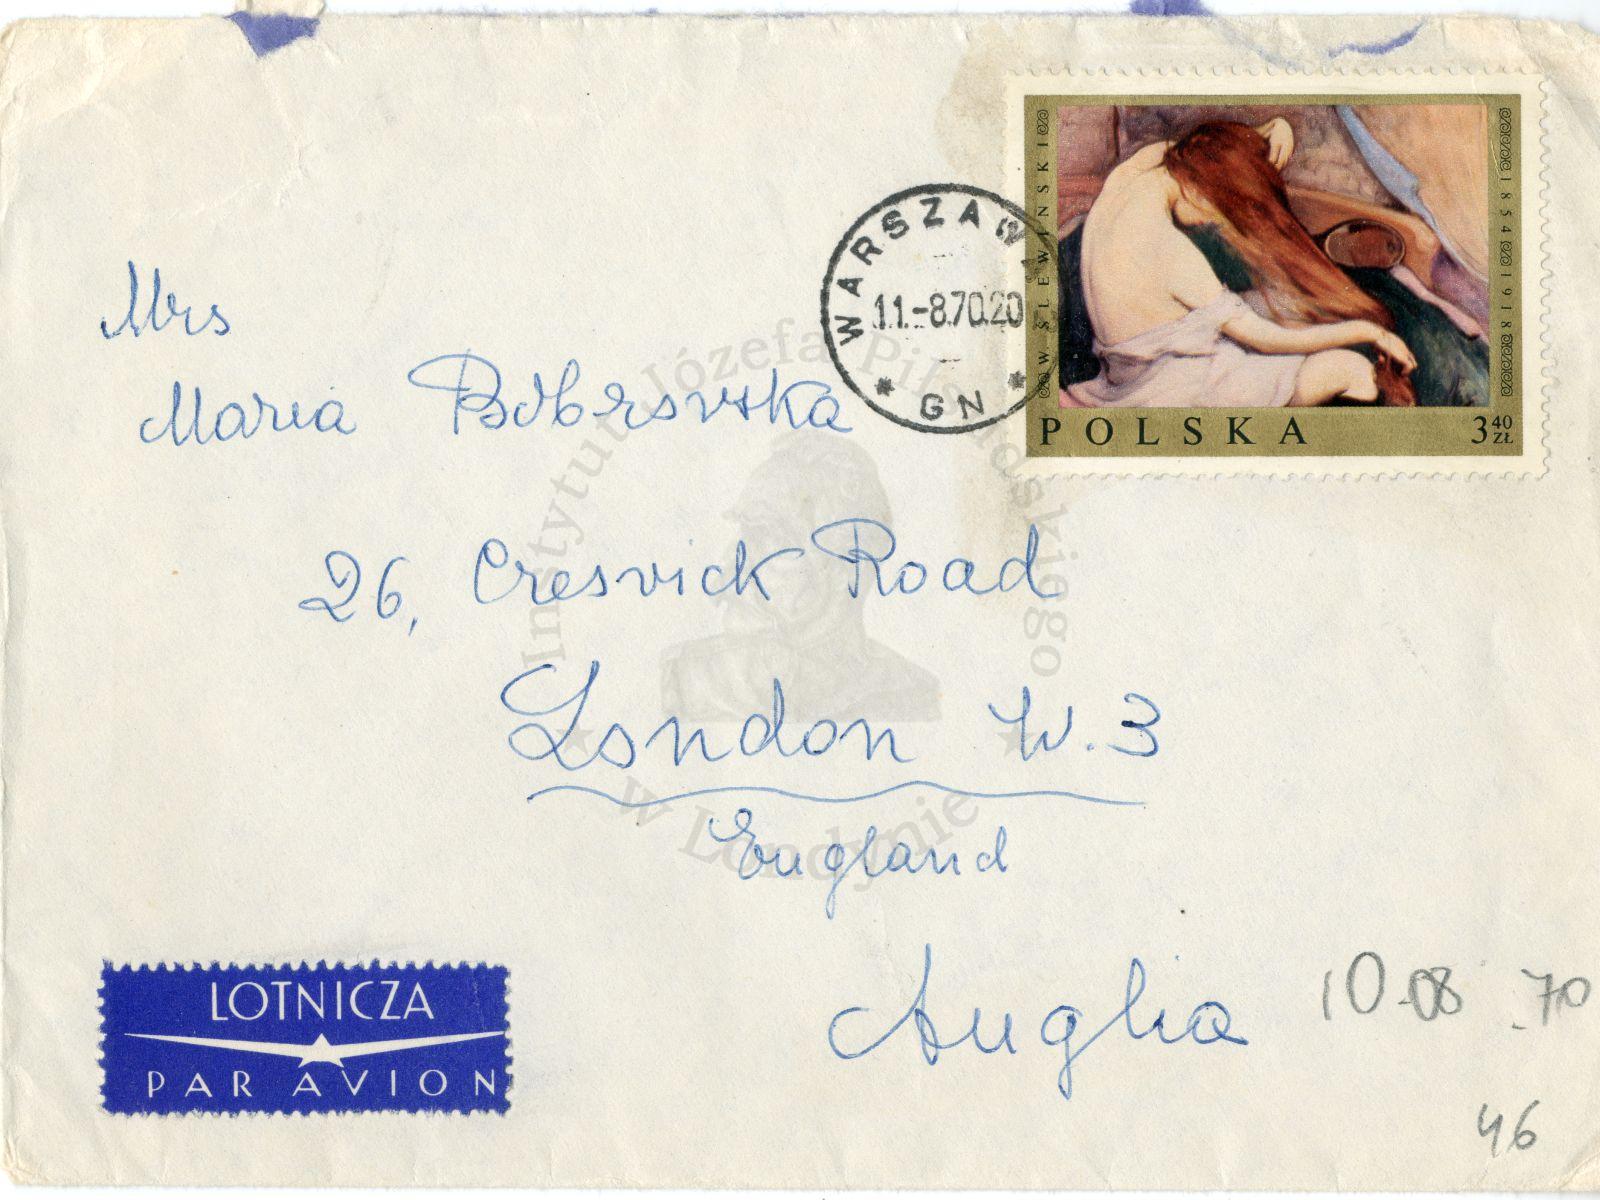 W. ŚLEWIŃSKI
1854
1918
POLSKA
3 40 ZŁ
WARSZAWA
11.-8.70.20
* GN *
Mrs
Maria Bobrowska
26, Cresvick Road
London W. 3
England
Anglia
10.08.70
46
LOTNICZA
PAR AVION
Instytut Józefa Piłsudskiego
w Londynie